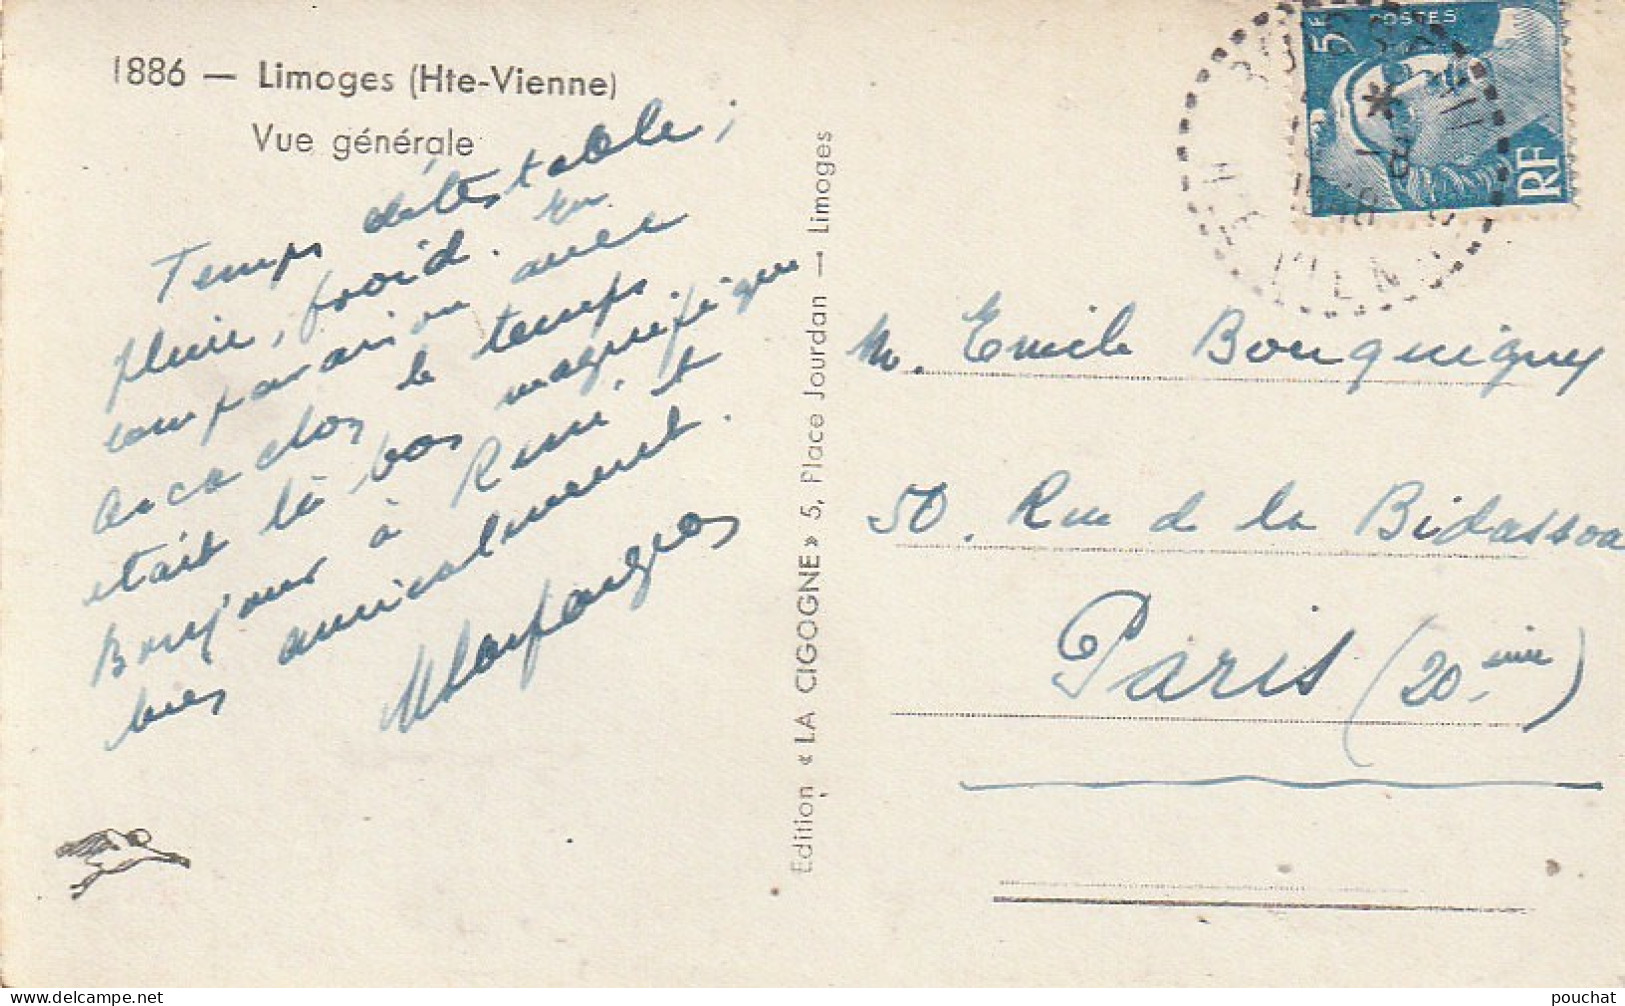 1886 — Limoges (Hte-Vienne)
Vue générale
Temps détestable,
pluie, froid. En
comparaison avec
Arcachon le temps
était là bas magnifique
Bonjour à René, et
bien amicalement.
Edition « LA CIGOGNE » 5, Place Jourdan — Limoges
5F POSTES
RF
VIENNE
M. Emile Bouquigny
50. Rue de la Bidassoa
Paris (20ème)
pouchat